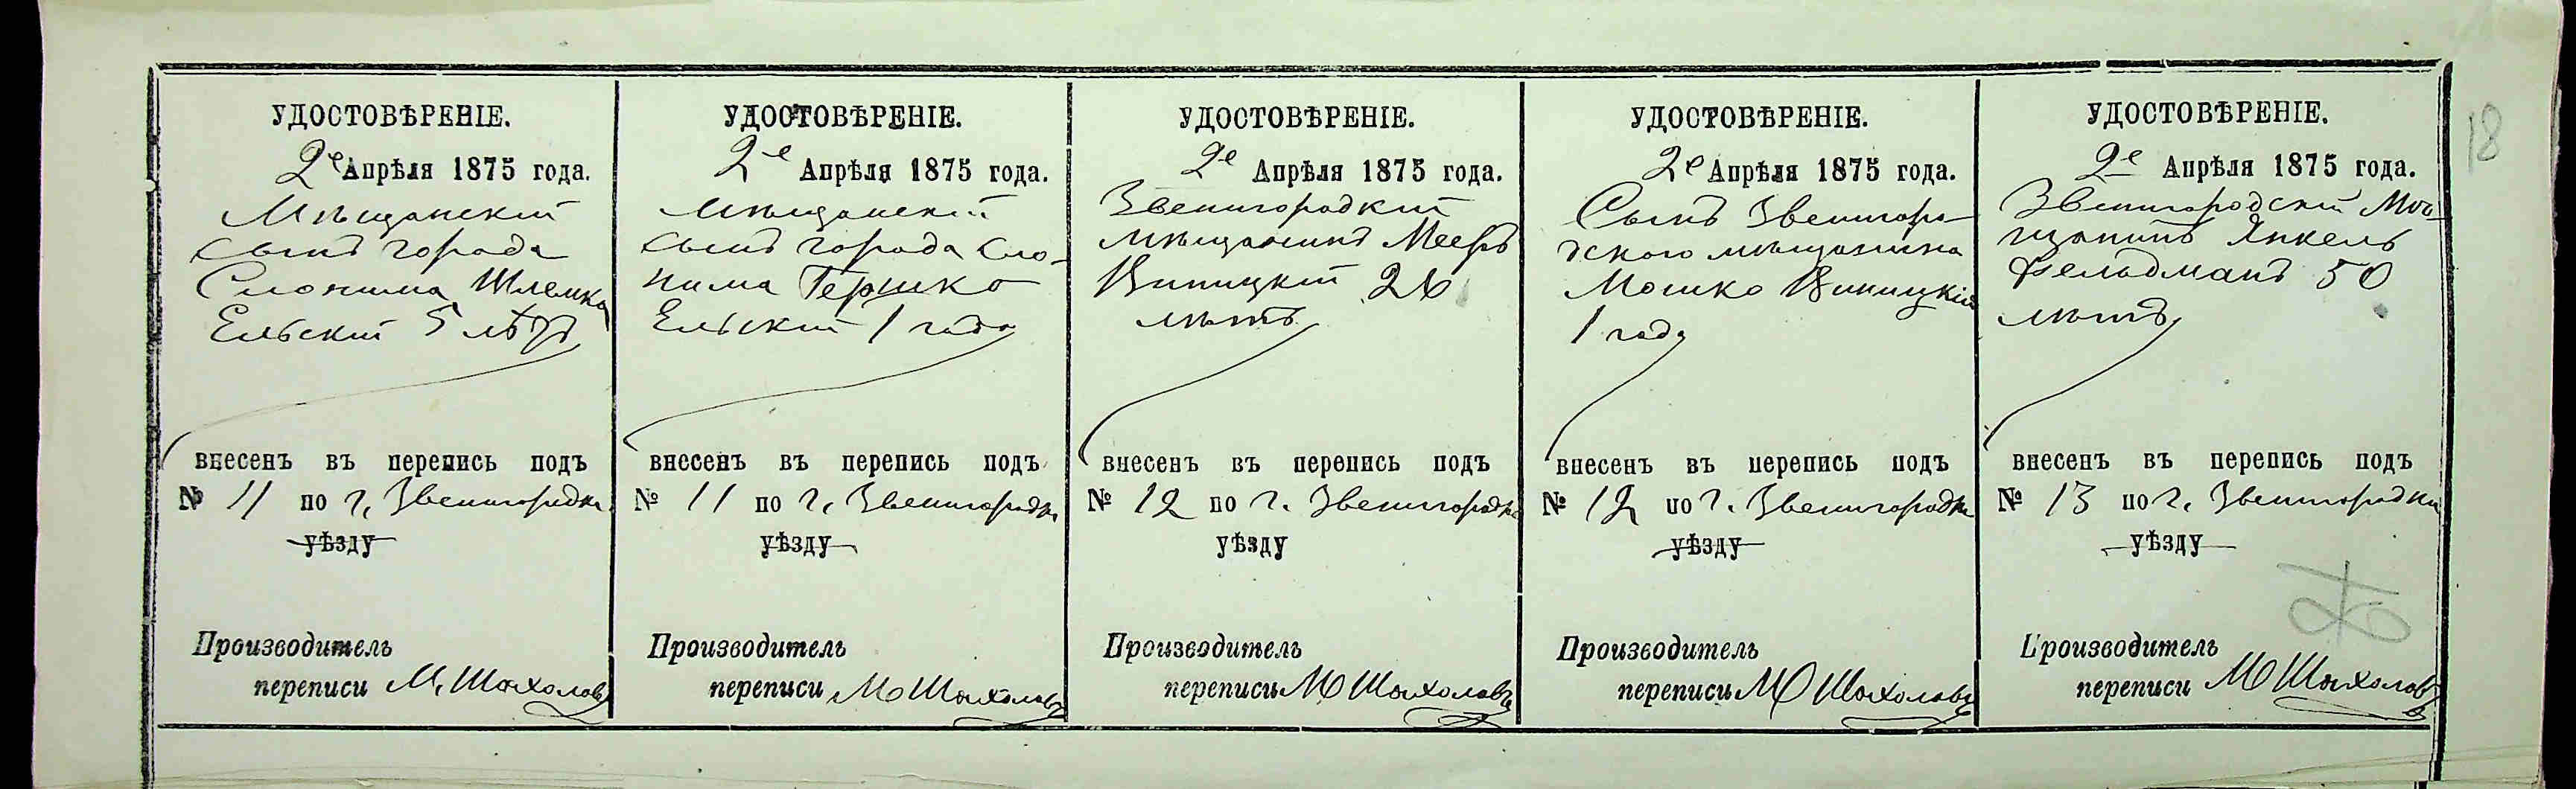 18
УДОСТОВѢРЕНІЕ.
2е Апрѣля 1875 года.
Мѣщанскій
сынъ города
Слонима Шлемка
Ельскій 5 лѣтъ
внесенъ въ перепись подъ
№ 11 по г. Звенигородкѣ
уѣзду
Производитель
переписи М. Шохоловъ
УДОСТОВѢРЕНІЕ.
2-е Апрѣля 1875 года.
Мѣщанскій
сынъ города Сло-
нима Гершко
Ельскій 1 года
внесенъ въ перепись подъ
№ 11 по г. Звенигородкѣ
уѣзду
Производитель
переписи МО Шохоловъ
УДОСТОВѢРЕНІЕ.
2е Апрѣля 1875 года.
Звенигородкий
мѣщанинъ Мееръ
Виницкій 26
лѣтъ
внесенъ въ перепись подъ
№ 12 по г. Звенигородкѣ
уѣзду
Производитель
переписи МО Шохоловъ
УДОСТОВѢРЕНІЕ.
2е Апрѣля 1875 года.
Сынъ Звенигоро-
дского мѣщанина
Мошко Виницкій
1 года
внесенъ въ перепись подъ
№ 12 по г. Звенигородкѣ
уѣзду
Производитель
переписи МО Шохоловъ
УДОСТОВѢРЕНІЕ.
2е Апрѣля 1875 года.
Звенигородскій Мѣ-
щанинъ Янкель
Фельдманъ 50
лѣтъ
внесенъ въ перепись подъ
№ 13 по г. Звенигородкѣ
уѣзду
Производитель
переписи МО Шохоловъ